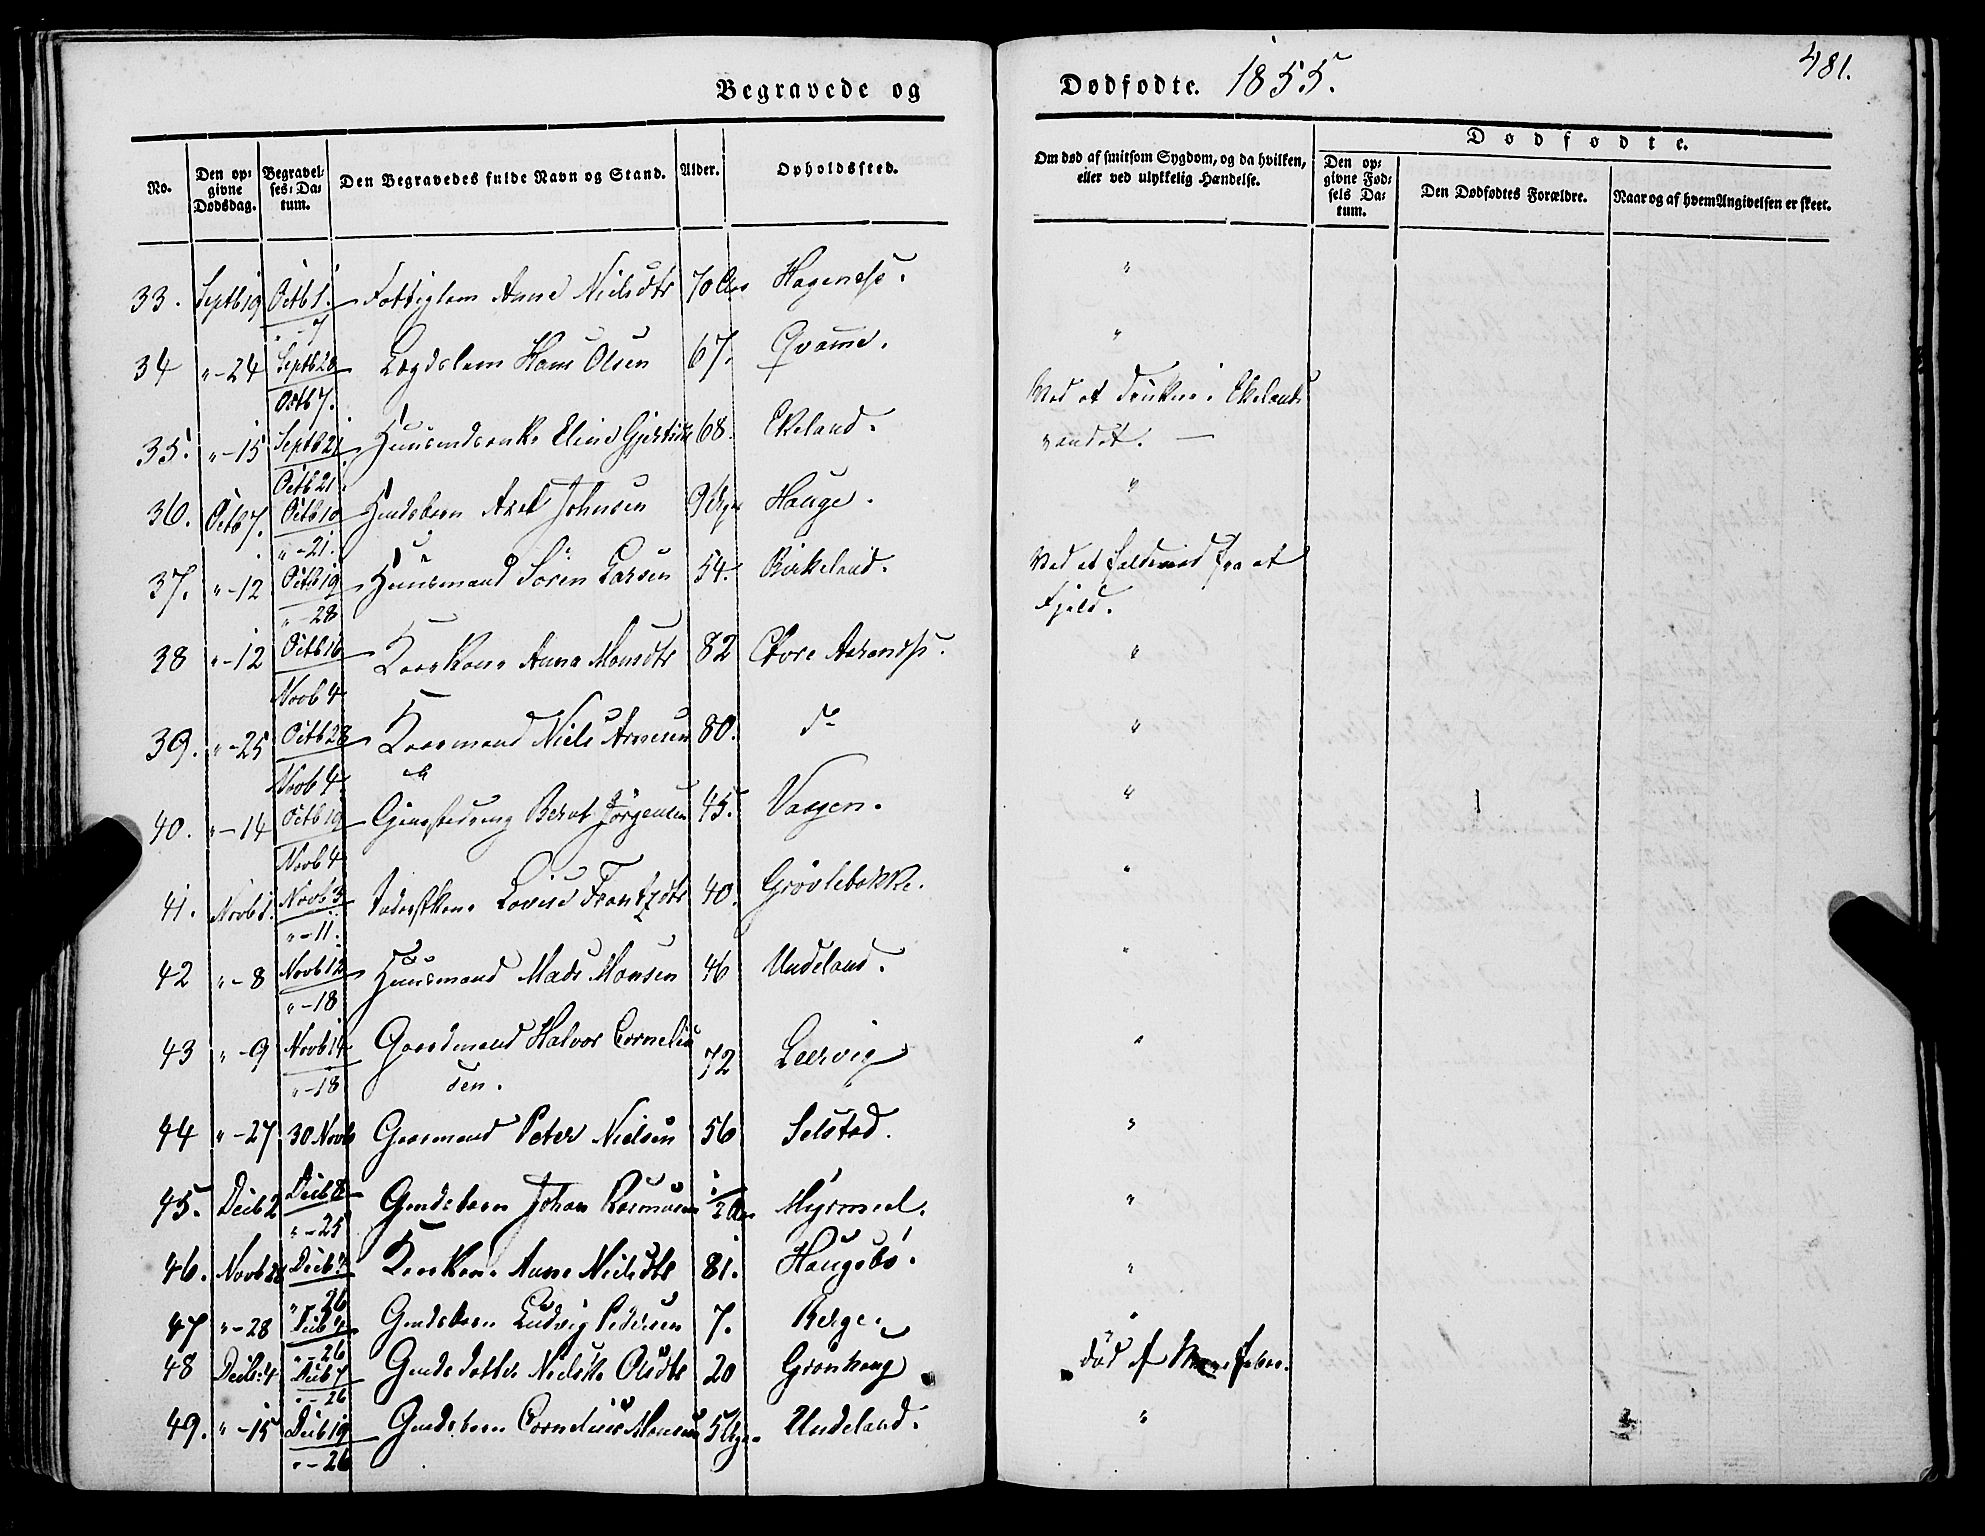 Begravede og
Dødfødte. 1855.
481.
No.
Den opgivne Dødsdag.
Begravelses-Datum.
Den Begravedes fulde Navn og Stand.
Alder.
Opholdssted.
Om død af smitsom Sygdom, og da hvilken, eller ved ulykkelig Hændelse.
Dødfødte.
Den opgivne Fødsels Datum.
Den Dødfødtes Forældre.
Naar og af hvem Angivelsen er skeet.
33. Septb 19 Octb 1. Fattiglem Anne Nielsdtr 70 Aar Hagenes. "
" - 7
34 " - 24 Septb 28 Lægdslem Hans Olsen 67. Qvamme. "
Octb 7.
35. " - 15 Septb 21 Huusmdsenke Eline 68. Ekeland. Ved at drukne i Ekelands
vandet. —
Octb 21.
36. Octb 7. Octb 10 Johnsen 9 Hauge. "
" - 21.
37. " - 12 Octb 19 Huusmand Sören Larsen 54. Birkeland. Ved et fra et
Fjeld.
" - 28
38 " - 12 Octb 16 Kaarkone Anna Monsdtr 82 "
Novb 4
39. " - 25 Octb 28 Kaarmand Niels Arnesen 80. do "
Novb 4
40. " - 14 Octb 19 Bernt Jörgensen 45. Vaagen. "
Novb 4
41. Novb 1. Novb 3 Lovise Frantzdtr 40. Grövlebakke. "
" - 11.
42 " - 8 Novb 12 Huusmand Mads Monsen 46 Undeland. "
" - 18
43 " - 9 Novb 14 Gaardmand Halvor Corneliu
sen. 72 Leervig "
" - 18
44 " - 27 30 Novb Gaarmand Peter Nielsen 56 Selstad. "
45. Decb 2 Decb 8 Gmdsbarn Johan Rasmusen 1/2 Aar Myrmel. "
" - 25
46. Novb 28 Decb 7 Kaarkone Anne Nielsdtr 81. Haugebö. "
" - 26
47 " - 28 Decb 7 Gmdsbarn Ludvig Pedersen 7. Berge. "
" - 26
48 Decb: 4 Decb 7 Gmds datter Nielske Olsdtr 20 Grönhoug död af
" - 26
49. " - 15 Decb 19 Gmdsbarn Cornelius Monsen 5 Undeland. "
" - 26